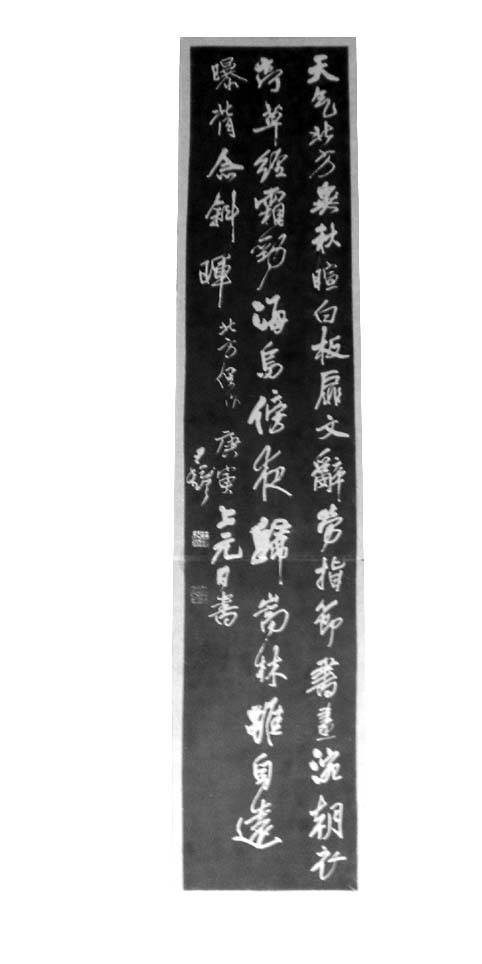 天气北方秋暄白板扉文辭勞指節書畫涴朝衣
草經霜海鳥傍夜歸嵩林雖自遠
曝背念斜暉 北方偶作 庚寅上元日書
王鐸